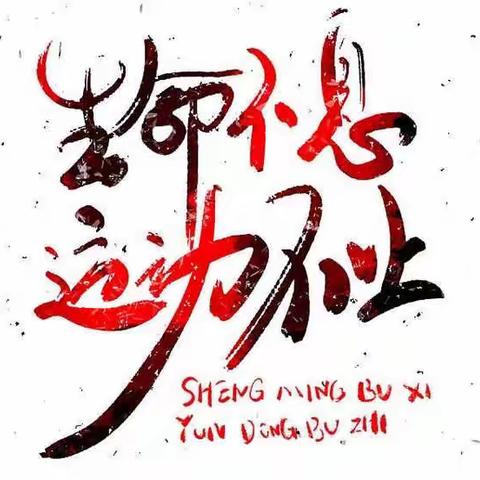 生命不息
运动不止
SHENG MING BU XI
YUN DONG BU ZHI